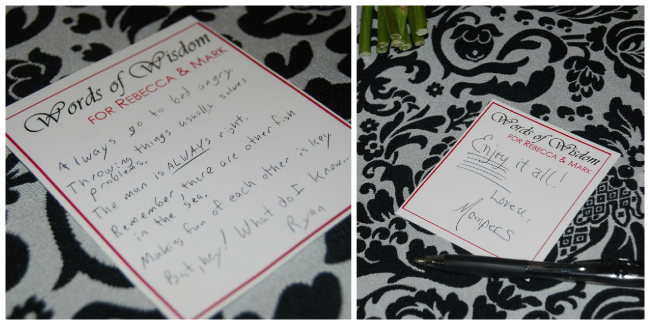 Words of Wisdom
FOR REBECCA & MARK
Always go to bed angry.
Throwing things usually solves
problems.
The man is ALWAYS right.
Remember there are other fish
in the sea.
Making fun of each other is key
But, hey! What do I know...
Ryan
Words of Wisdom
FOR REBECCA & MARK
Enjoy it all.
Love,